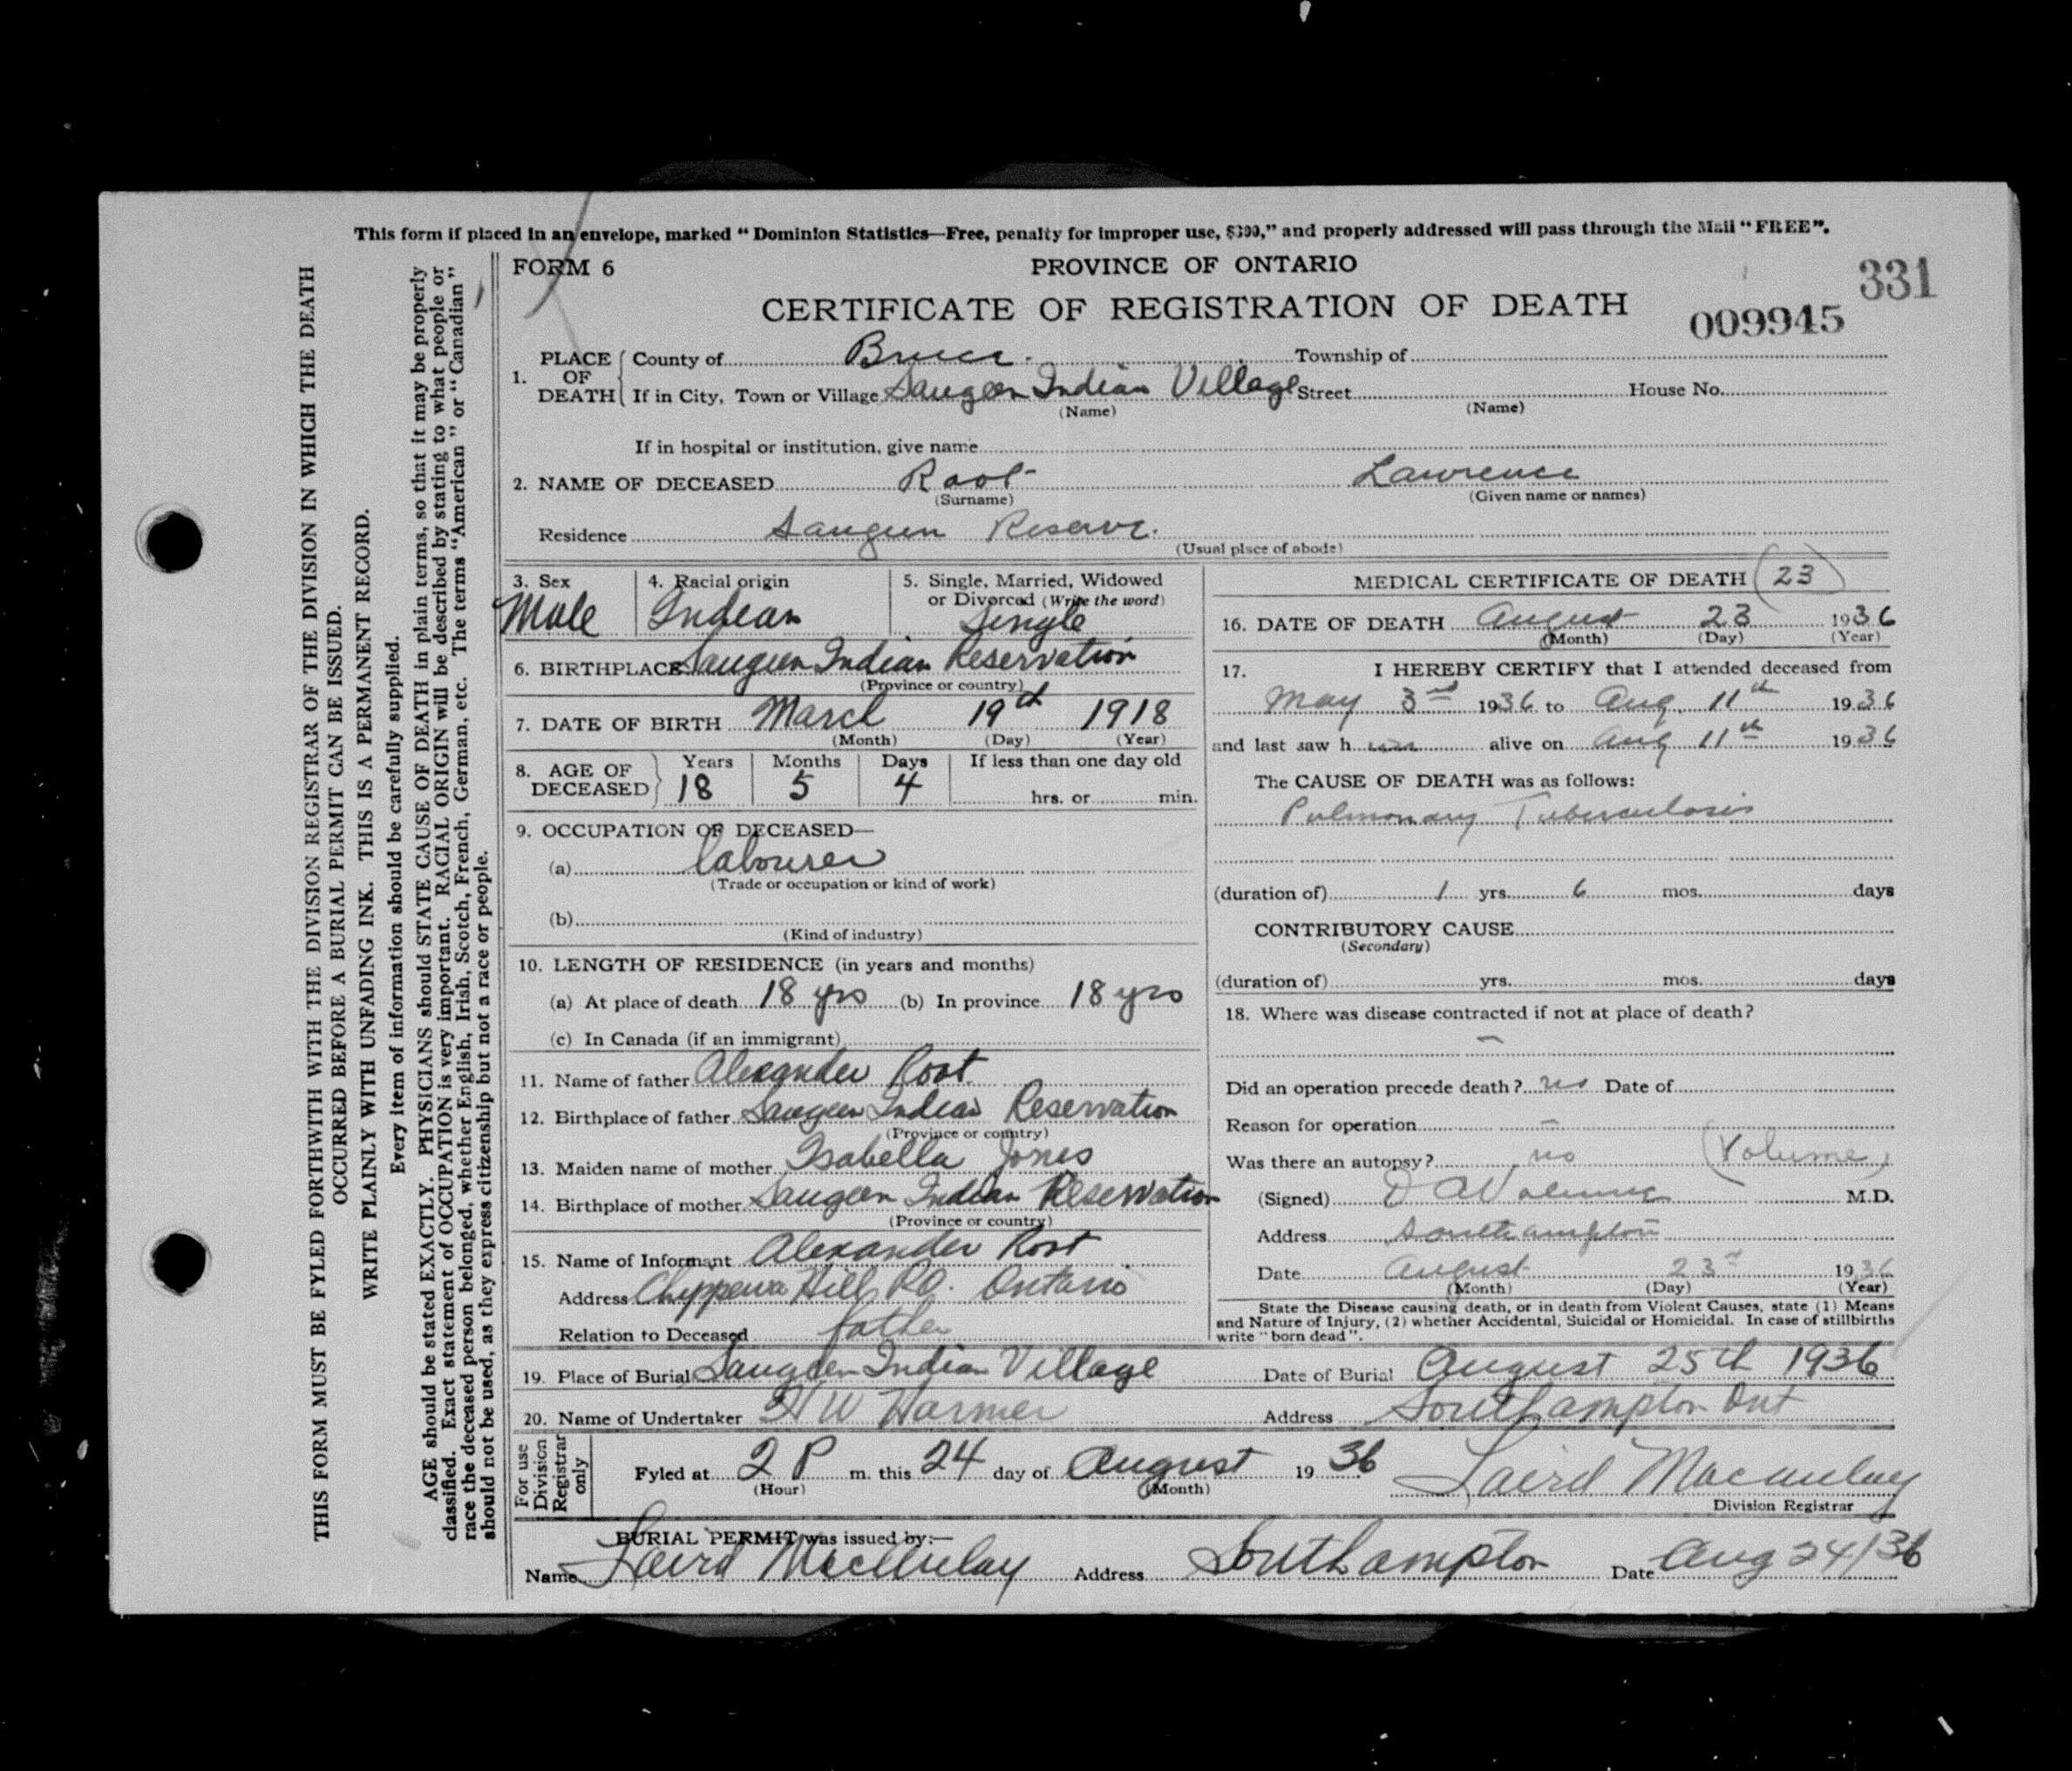 This form if placed in an envelope, marked "Dominion Statistics—Free, penalty for improper use, $300," and properly addressed will pass through the Mail "FREE".
THIS FORM MUST BE FYLED FORTHWITH WITH THE DIVISION REGISTRAR OF THE DIVISION IN WHICH THE DEATH
OCCURRED BEFORE A BURIAL PERMIT CAN BE ISSUED.
WRITE PLAINLY WITH UNFADING INK. THIS IS A PERMANENT RECORD.
Every item of information should be carefully supplied.
AGE should be stated EXACTLY. PHYSICIANS should STATE CAUSE OF DEATH in plain terms, so that it may be properly
classified. Exact statement of OCCUPATION is very important. RACIAL ORIGIN will be described by stating to what people or
race the deceased person belonged, whether English, Irish, Scotch, French, German, etc. The terms "American" or "Canadian"
should not be used, as they express citizenship but not a race or people.
FORM 6 PROVINCE OF ONTARIO 331
CERTIFICATE OF REGISTRATION OF DEATH 009945
1. PLACE OF DEATH County of Bruce. Township of
If in City, Town or Village Saugeen Indian Village Street House No.
(Name) (Name)
If in hospital or institution, give name
2. NAME OF DECEASED Root Lawrence
(Surname) (Given name or names)
Residence Saugeen Reserve.
(Usual place of abode)
3. Sex Male
4. Racial origin Indian
5. Single, Married, Widowed
or Divorced (Write the word)
Single
6. BIRTHPLACE Saugeen Indian Reservation
(Province or country)
7. DATE OF BIRTH March 19th 1918
(Month) (Day) (Year)
8. AGE OF DECEASED Years Months Days If less than one day old
18 5 4 hrs. or min.
9. OCCUPATION OF DECEASED—
(a) labourer
(Trade or occupation or kind of work)
(b)
(Kind of industry)
10. LENGTH OF RESIDENCE (in years and months)
(a) At place of death 18 yrs (b) In province 18 yrs
(c) In Canada (if an immigrant)
11. Name of father Alexander Root
12. Birthplace of father Saugeen Indian Reservation
(Province or country)
13. Maiden name of mother Isabella Jones
14. Birthplace of mother Saugeen Indian Reservation
(Province or country)
15. Name of Informant Alexander Root
Address Chippewa Hill P.O. Ontario
Relation to Deceased father
MEDICAL CERTIFICATE OF DEATH (23)
16. DATE OF DEATH August 23 1936
(Month) (Day) (Year)
17. I HEREBY CERTIFY that I attended deceased from
May 3rd 1936 to Aug. 11th 1936
and last saw him alive on Aug 11th 1936
The CAUSE OF DEATH was as follows:
Pulmonary Tuberculosis
(duration of) 1 yrs. 6 mos. days
CONTRIBUTORY CAUSE
(Secondary)
(duration of) yrs. mos. days
18. Where was disease contracted if not at place of death?
—
Did an operation precede death? no Date of
Reason for operation —
Was there an autopsy? no (Volume)
(Signed) D A Volume M.D.
Address Southampton
Date August 23rd 1936
(Month) (Day) (Year)
State the Disease causing death, or in death from Violent Causes, state (1) Means
and Nature of Injury, (2) whether Accidental, Suicidal or Homicidal. In case of stillbirths
write "born dead".
19. Place of Burial Saugeen Indian Village Date of Burial August 25th 1936
20. Name of Undertaker W Harmer Address Southampton Ont
For use Division Registrar only
Fyled at 2 P m. this 24 day of August 1936 Laird Macaulay
(Hour) (Month) Division Registrar
BURIAL PERMIT was issued by:—
Name Laird MacAulay Address Southampton Date Aug 24/36